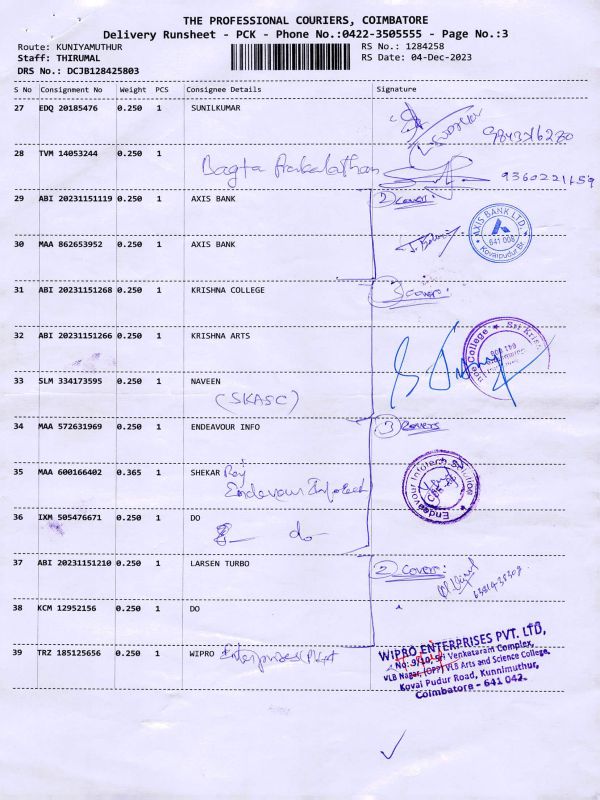 THE PROFESSIONAL COURIERS, COIMBATORE
Delivery Runsheet - PCK - Phone No.:0422-3505555 - Page No.:3
Route: KUNIYAMUTHUR RS No.: 1284258
Staff: THIRUMAL RS Date: 04-Dec-2023
DRS No.: DCJB128425803
S No Consignment No Weight PCS Consignee Details Signature
27 EDQ 20185476 0.250 1 SUNILKUMAR
28 TVM 14053244 0.250 1
9360221659
29 ABI 20231151119 0.250 1 AXIS BANK 2 covers:
AXIS BANK LTD.
641 008
Kovaipudur Br.
30 MAA 862653952 0.250 1 AXIS BANK
31 ABI 20231151268 0.250 1 KRISHNA COLLEGE 3 covers:
32 ABI 20231151266 0.250 1 KRISHNA ARTS
33 SLM 334173595 0.250 1 NAVEEN
(SKASC)
34 MAA 572631969 0.250 1 ENDEAVOUR INFO 3 covers
35 MAA 600166402 0.365 1 SHEKAR Raj
Endevour Infotech
Endeavour Infotech Solution
CBE
36 IXM 505476671 0.250 1 DO
do
37 ABI 20231151210 0.250 1 LARSEN TURBO 2 covers:
38 KCM 12952156 0.250 1 DO
39 TRZ 185125656 0.250 1 WIPRO Enterprises Pvt
WIPRO ENTERPRISES PVT. LTD,
No: 9/10, Sri Venkataram Complex,
VLB Nagar, (OPP) VLB Arts and Science College,
Kovai Pudur Road, Kunnimuthur,
Coimbatore - 641 042.